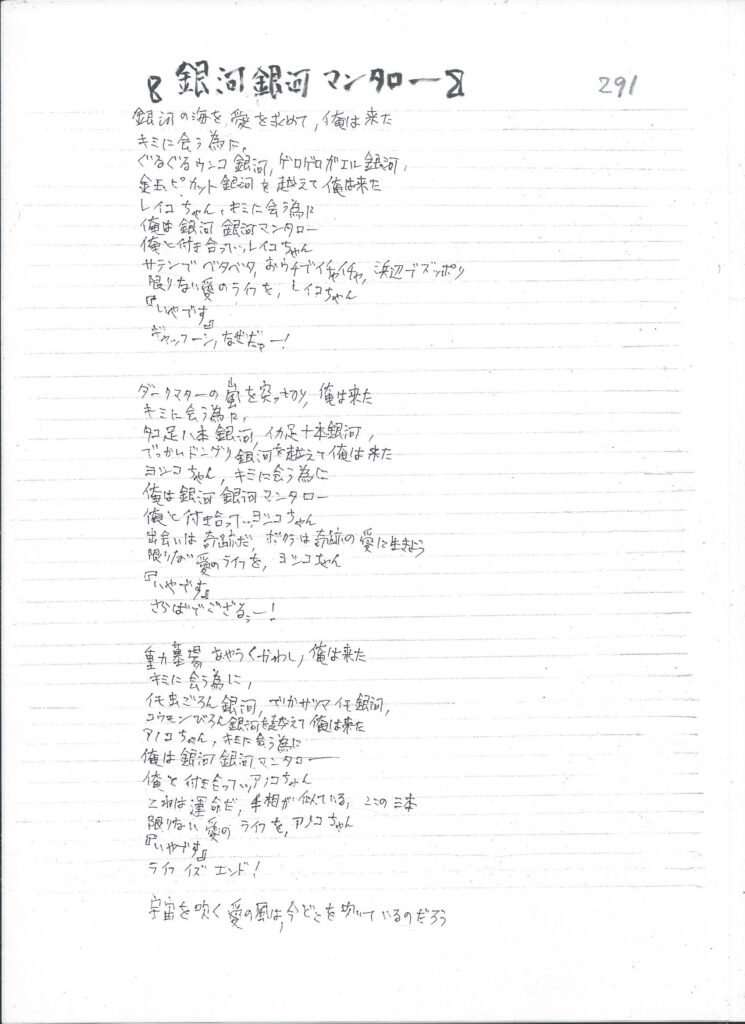 銀河銀河マンタロー
291
銀河の海を愛を求めて,俺は来た
キミに会う為に,
ぐるぐるウンコ銀河,ゲロゲロガエル銀河,
金玉ピカット銀河を越えて俺は来た
レイコちゃん,キミに会う為に
俺は銀河銀河マンタロー
俺と付き合ってッレイコちゃん
サテンでベタベタ,おウチでイチャイチャ,浜辺でズッポリ
限りない愛のライフを,レイコちゃん
『いやです』
ギャッフーン,なぜだァー!
ダークマターの嵐を突っ切り,俺は来た
キミに会う為に,
タコ足八本銀河,イカ足十本銀河,
でっかいドングリ銀河を越えて俺は来た
ヨシコちゃん,キミに会う為に
俺は銀河銀河マンタロー
俺と付き合ってッヨシコちゃん
出会いは奇跡だ,ボクらは奇跡の愛に生きよう
限りない愛のライフを,ヨシコちゃん
『いやです』
さらばでござるぅー!
重力墓場あやうくかわし,俺は来た
キミに会う為に,
イモ虫ごろん銀河,でかサツマイモ銀河,
コウモンびろん銀河を越えて俺は来た
アノコちゃん,キミに会う為に
俺は銀河銀河マンタロー
俺と付き合ってッアノコちゃん
これは運命だ,手相が似ている,ここの三本
限りない愛のライフを,アノコちゃん
『いやです』
ライフイズエンド!
宇宙を吹く愛の風は,今どこを吹いているのだろう